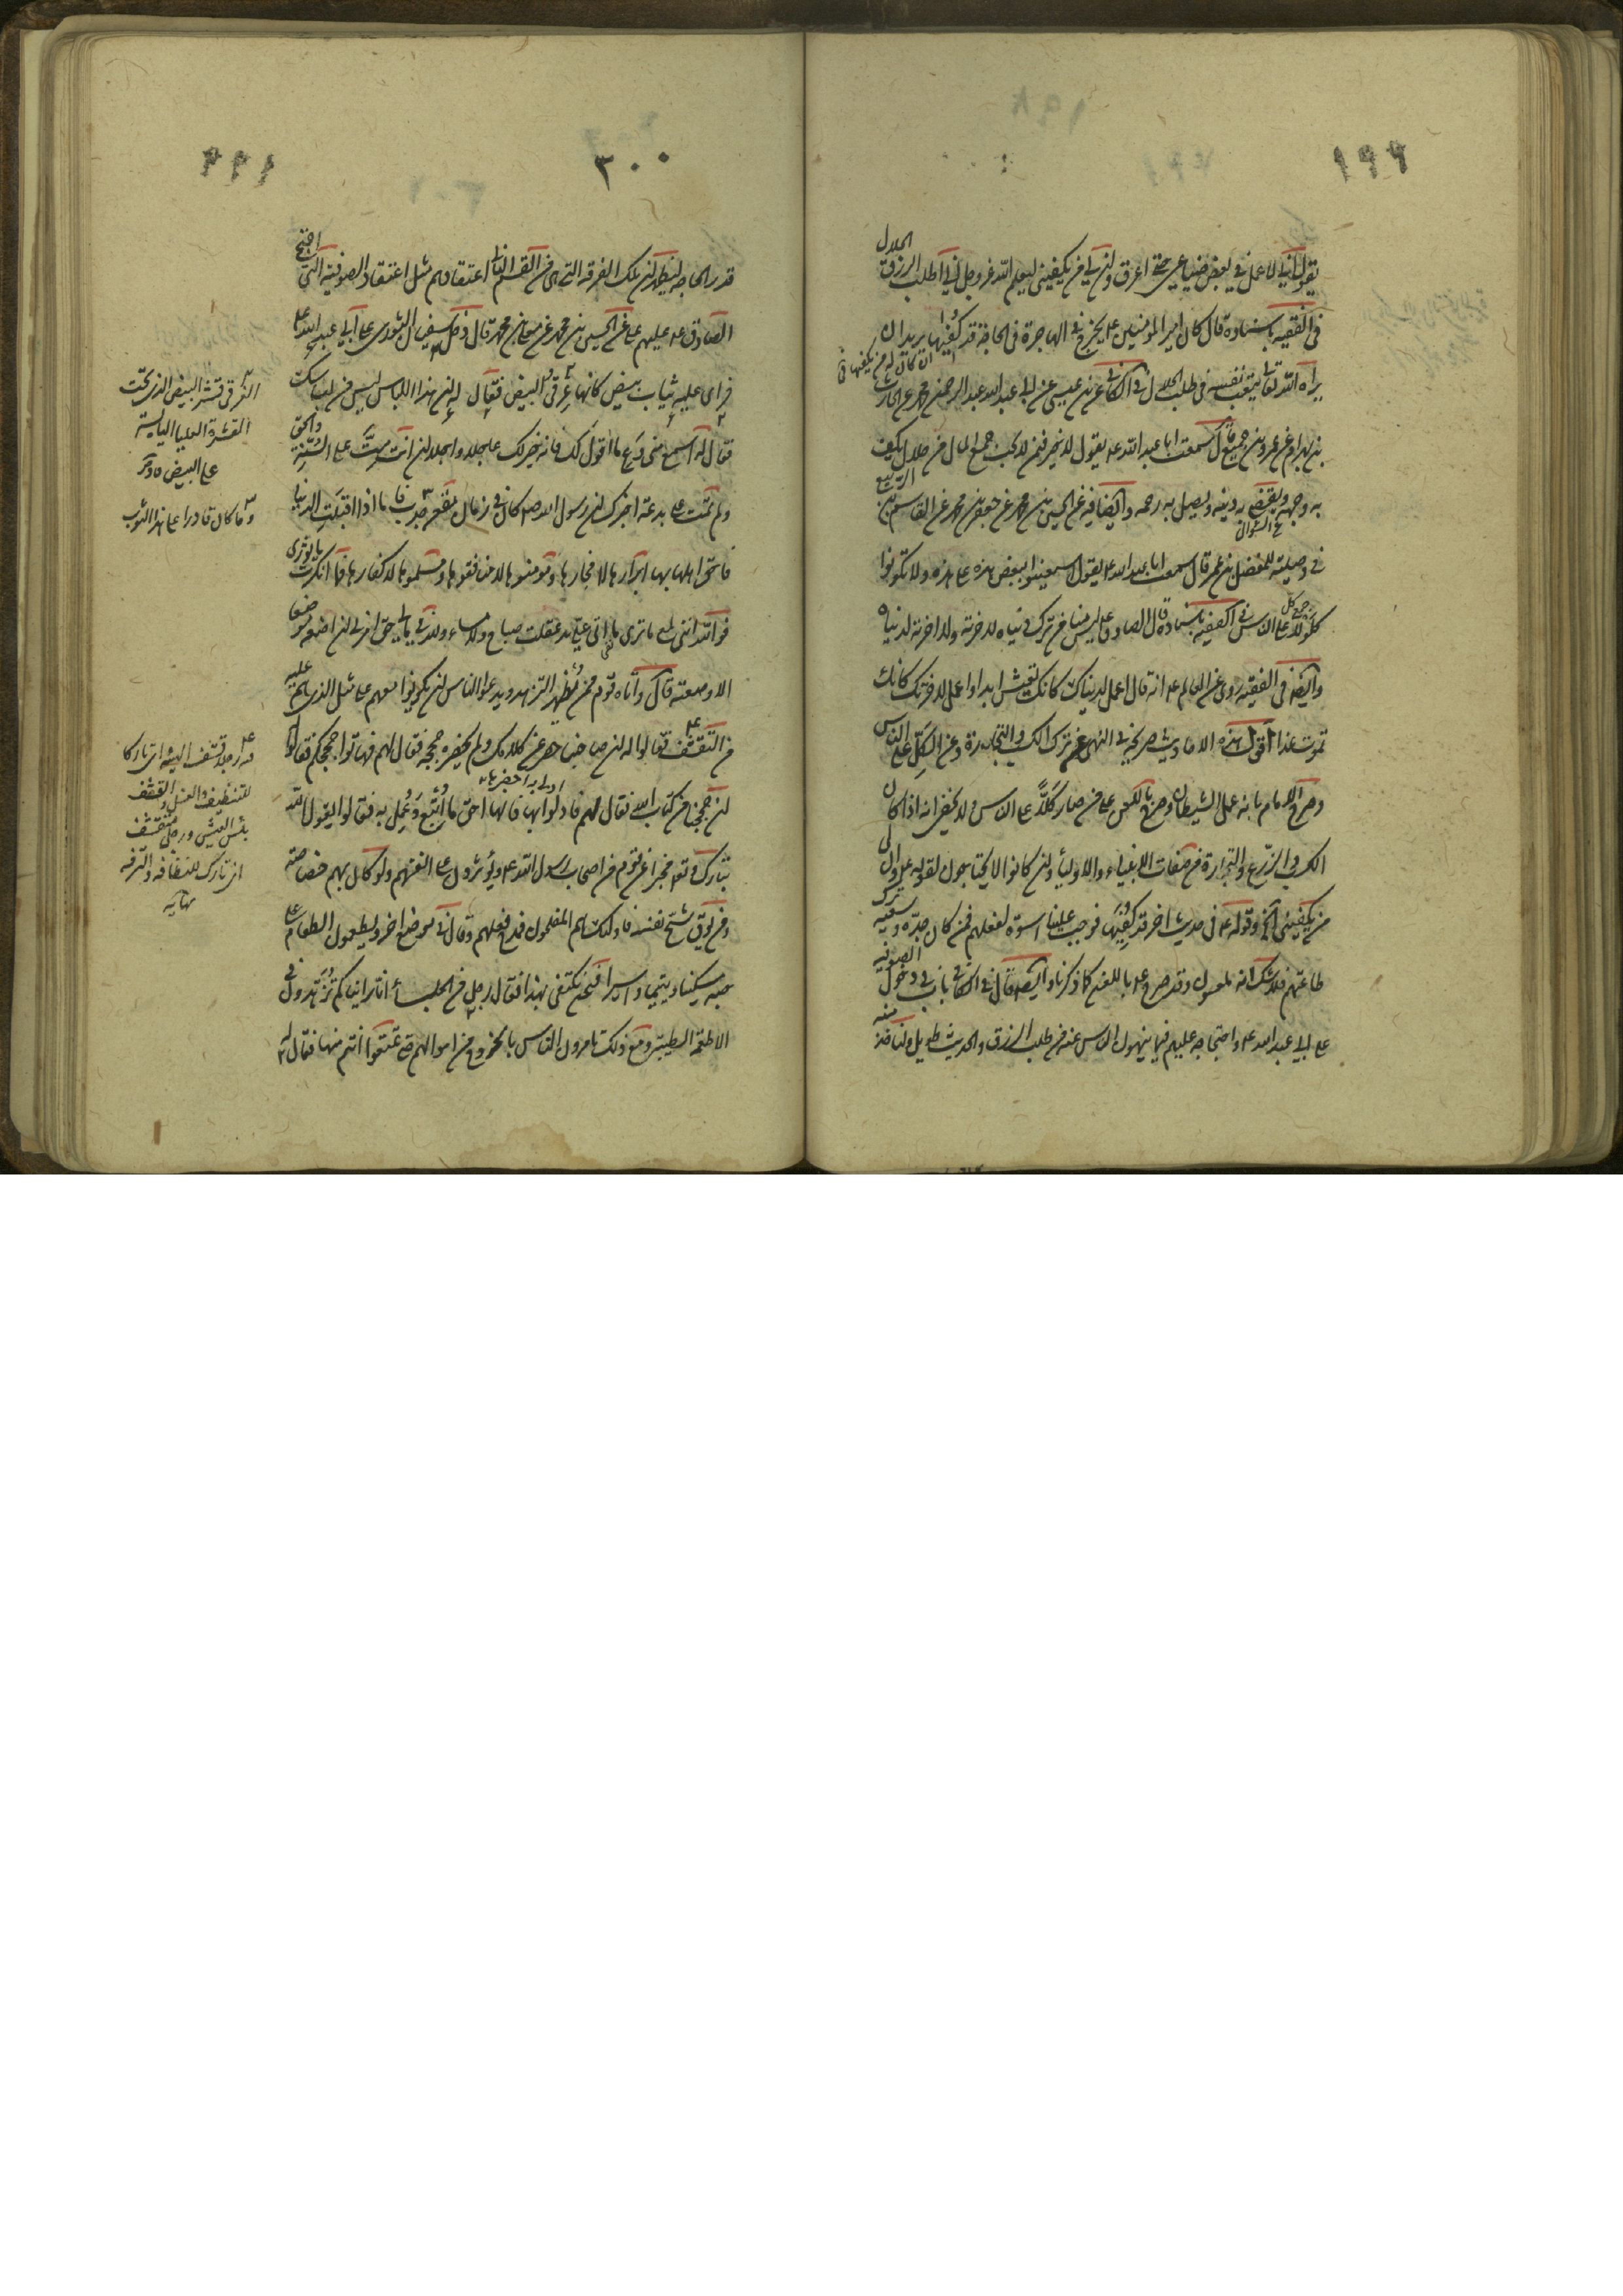 ١٩٩
يقول اني لاعمل في بعض ضياعي حتى اعرق وان لي من يكفيني ليعلم الله عز وجل اني اطلب الرزق الحلال
في الفقيه باسناده قال كان امير المؤمنين ع يخرج في الهاجرة في الحاجة قد كُفِيَها يريد ان
يراه الله تعالى يتعب نفسه في طلب الحلال في الكافي عن بن عيسى عن ابي عبد الله عبد الرحمن بن محمد عن الحارث
بن بهرام عن عمرو بن جميع قال سمعت ابا عبد الله ع يقول لا خير فيمن لا يحب جمع المال من حلال يكف
به وجهه ويقضي به دينه ويصل به رحمه وايضا فيه عن الحسين بن محمد عن جعفر بن محمد عن القاسم بن الربيع
في وصيته للمفضل بن عمر قال سمعت ابا عبد الله ع يقول استعينوا ببعض هذه على هذه ولا تكونوا
كلولا على الناس في الفقيه باسناده قال الصادق ع ليس منا من ترك دنياه لاخرته ولا اخرته لدنياه
وايضا في الفقيه روى عن العالم ع انه قال اعمل لدنياك كانك تعيش ابدا واعمل لاخرتك كانك
تموت غدا اقول هذه الاحاديث صريحة في النهى عن ترك الكسب والتجارة وعن الكَلّ على الناس
وصرح الامام بانه عمل الشيطان وصرح باللعن على من صار كَلًّا على الناس ولا يخفى انه اذا كان
الكسب والزرع والتجارة من صفات الانبياء والاولياء وان كانوا لا يحتاجون لقوله ع وان لي
من يكفيني الخ وقوله ع في حديث اخر قد كُفِيَها فوجب علينا اسوة لفعلهم فمن كان جدّه وسعيه ترك
طاعتهم فلا شك انه ملعون وقد صرح ع باللعن كما ذكرنا وايضا قال في الكافي باب في دخول الصوفية
على ابي عبد الله ع واحتجاجه عليهم فيما ينهون الناس عنه من طلب الرزق والحديث طويل ولناخذ منه
٣٠٠
قدر الحاجة ليظهر ان تلك الفرقة التي هي من القسم الثاني اعتقادهم مثل اعتقاد الصوفية التي احتج
الصادق ع عليهم علي عن الحسين بن محمد عن محمد قال دخل سفيان الثوري على ابي عبد الله ع
فراى عليه ثياب بيض كانها غِرقئ البيض فقال له ان هذا اللباس ليس من لباسك
فقال له اسمع مني وَعِ ما اقول لك فانه خير لك عاجلا واجلا ان انت متّ على السنة والحق
ولم تمت على بدعة اخبرك ان رسول الله ص كان في زمان مقفر جدب فاما اذا اقبلت الدنيا
فاحق اهلها بها ابرارها لا فجارها ومؤمنوها لا منافقوها ومسلموها لا كفارها فما انكرت يا ثوري
فوالله انني لمع ما ترى ما اتى علي مذ عقلت صباح ولا مساء ولله في مالي حق امرني ان اضعه موضعا
الا وضعته قال واتاه قوم ممن يُظهر التزهد ويدعوا الناس ان يكونوا معهم على مثل الذي هم عليه
من التقشف فقالوا له ان صاحبنا حصر عن كلامك ولم يحضره حججه فقال لهم فهاتوا حججكم فقالوا
ان حججنا من كتاب الله فقال لهم فادلوا بها فانها احق ما اتُّبِع وعُمِل به فقالوا يقول الله
تبارك وتعالى مخبرا عن قوم من اصحاب رسول الله ع ويؤثرون على انفسهم ولو كان بهم خصاصة
ومن يوق شح نفسه فاولئك هم المفلحون فمدح فعلهم وقال في موضع اخر ويطعمون الطعام على
حبه مسكينا ويتيما واسيرا فنحن نكتفي بهذا فقال رجل من الجلساء انا رايناكم تزهدون في
الاطعمة الطيبة ومع ذلك تامرون الناس بالخروج من اموالهم حتى تمتعوا انتم منها فقال له
الغرقئ قشر البيض الذي تحت
القشرة العليا اليابسة
على البيض
وما كان قادرا على هذا الثوب
رجل قشف الهيئة اي تاركا
للتنظيف والغسل والقشف
يبس العيش ورجل متقشف
اي تارك للنظافة والترفه
نهاية